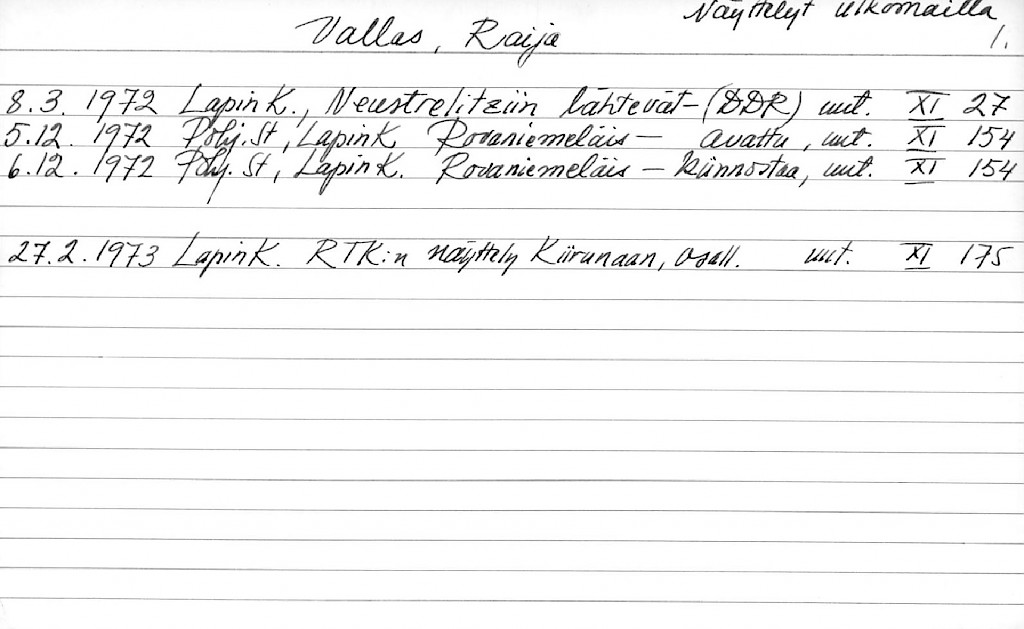 Näyttelyt ulkomailla
Vallas, Raija 1.
8.3. 1972 Lapin K., Neustrelitziin lähtevät - (DDR) uut. XI 27
5.12. 1972 Pohj. St, Lapin K Rovaniemeläis - avattu, uut. XI 154
6.12. 1972 Pohj. St, Lapin K. Rovaniemeläis - kiinnostaa, uut. XI 154
27.2. 1973 Lapin K. RTK:n näyttely Kiirunaan, osall. uut. XI 175